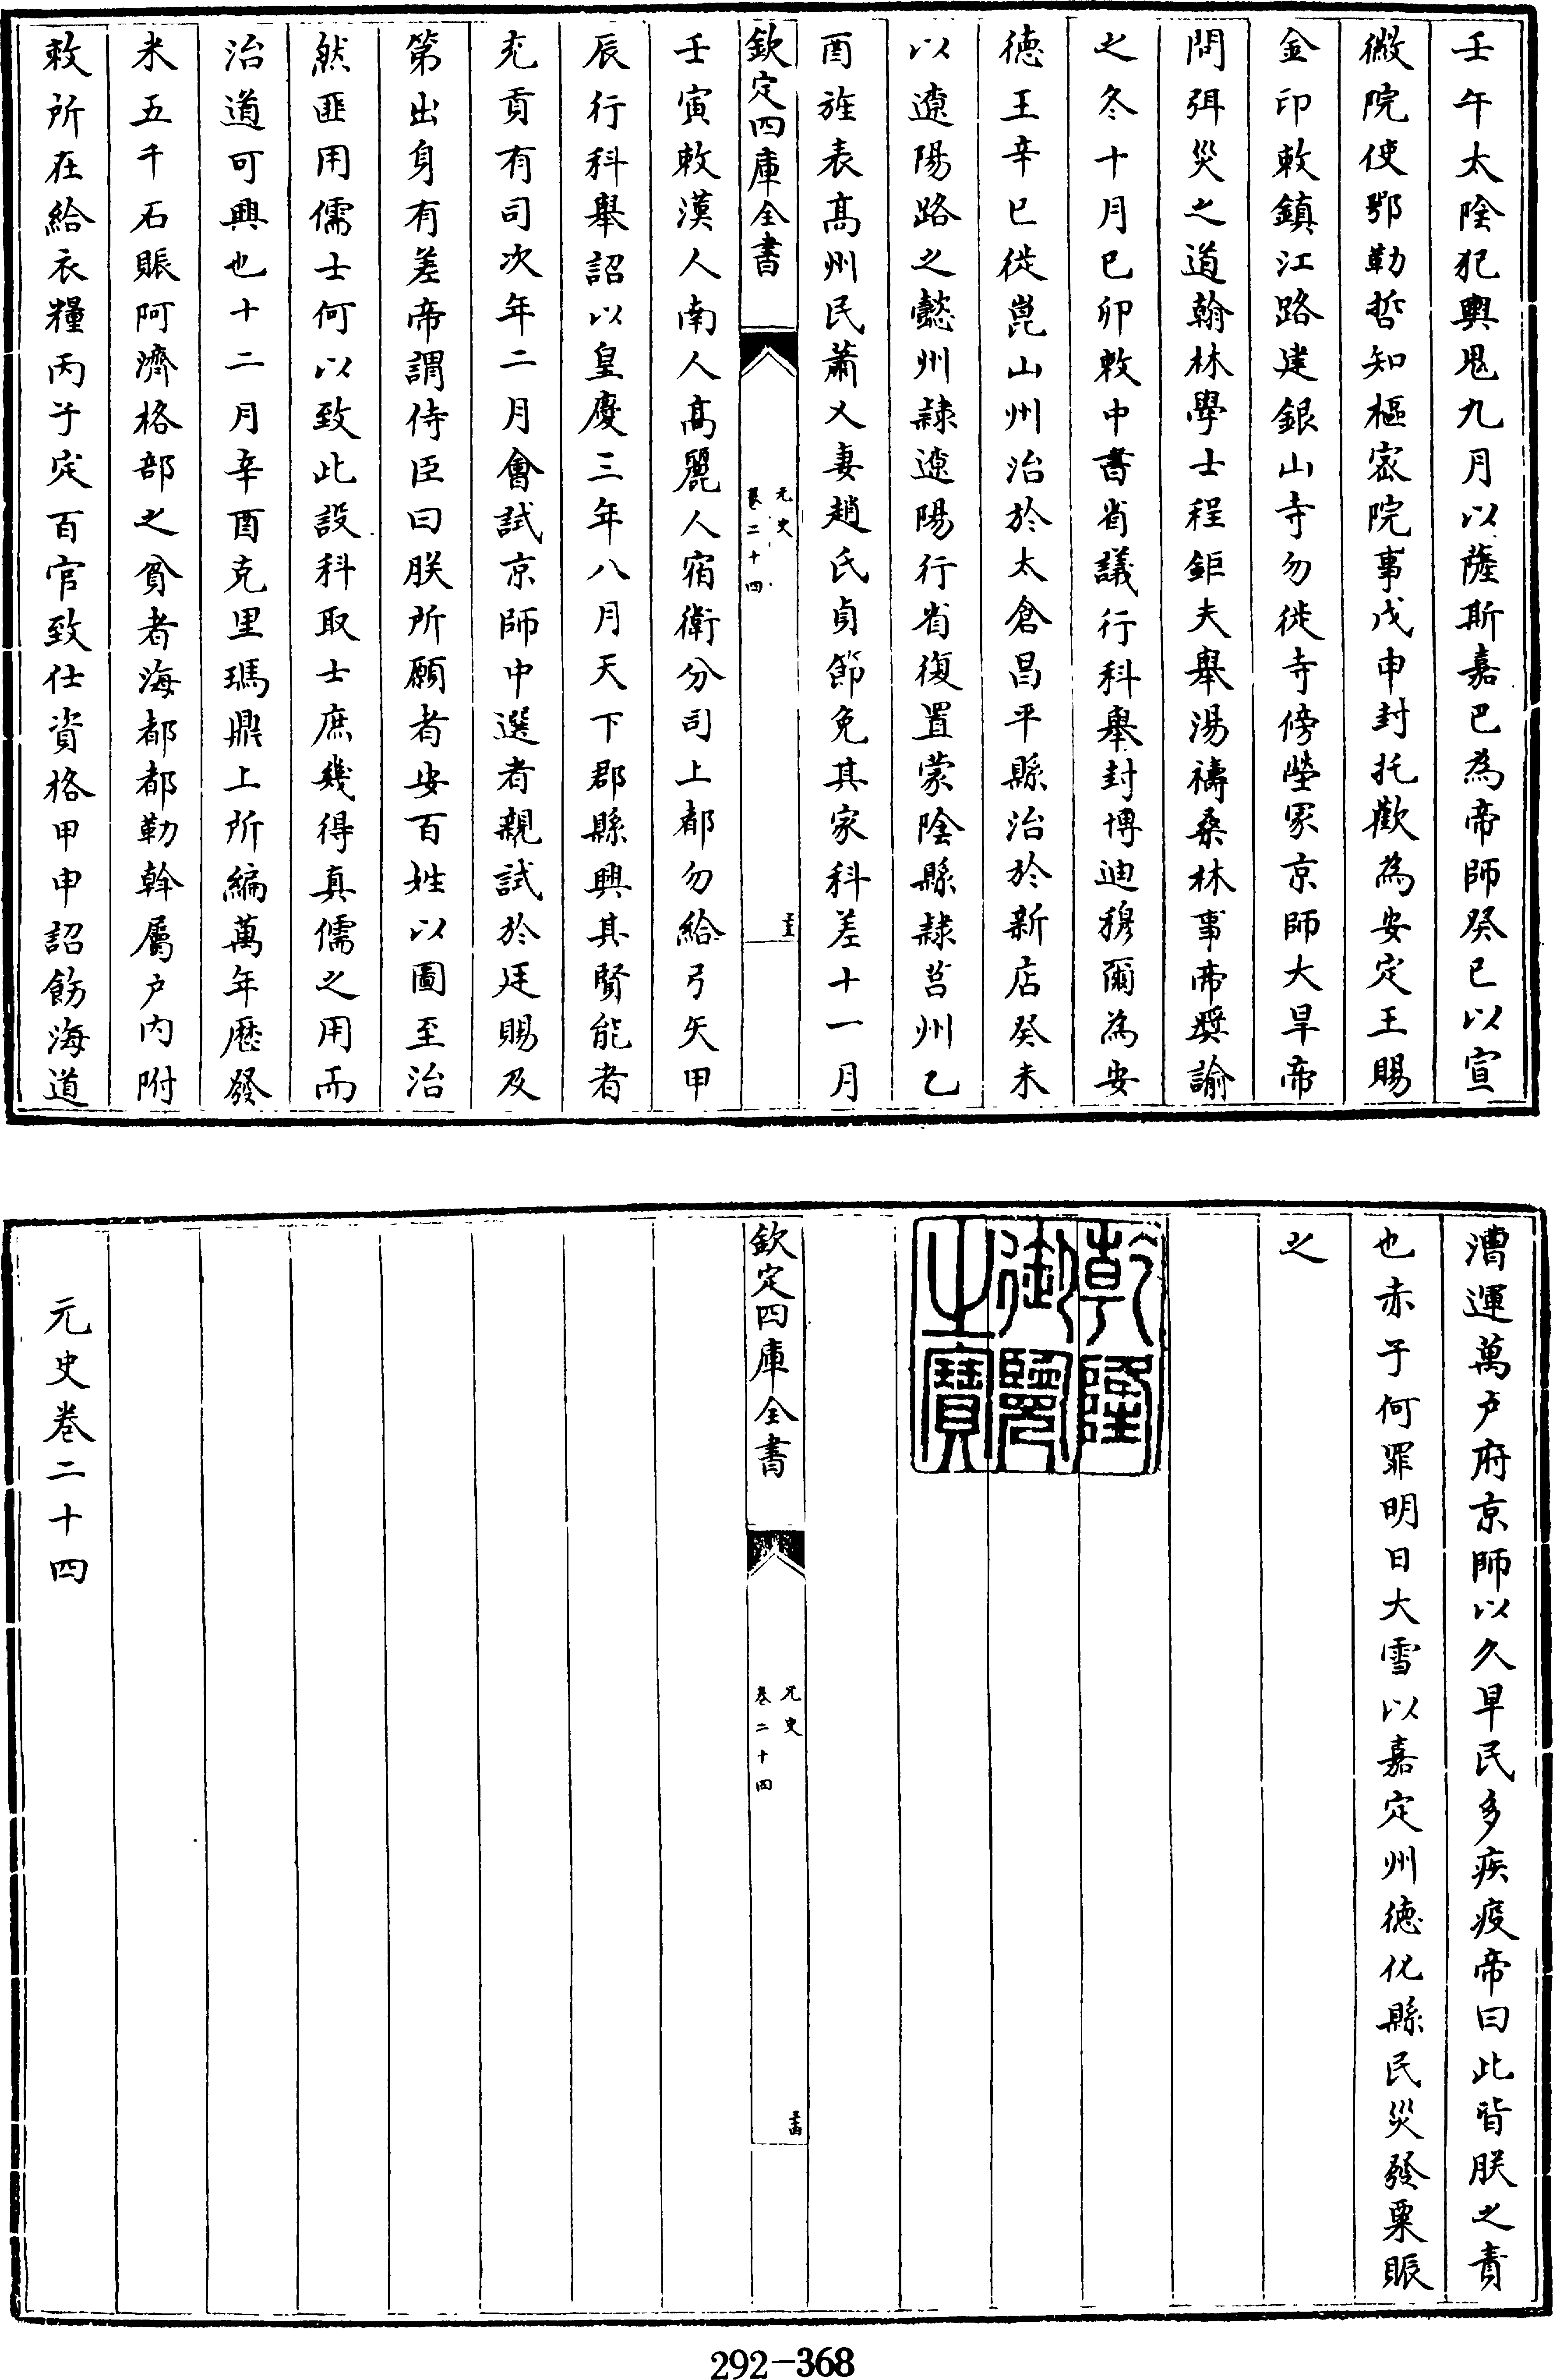 壬午太陰犯輿鬼九月以薩斯嘉巴為帝師癸已以宣
徽院使鄂勒哲知樞宻院事戊申封托歡為安定王賜
金印敕鎮江路建銀山寺勿徙寺傍塋冢京師大旱帝
問弭災之道翰林學士程鉅夫舉湯禱桑林事帝奨諭
之冬十月已卯敕中書省議行科舉封博迪穆爾為安
徳王辛巳徙崑山州治於太倉昌平縣治於新店癸未
以遼陽路之懿州隷遼陽行省復置蒙陰縣隷莒州乙
酉旌表髙州民蕭乂妻趙氏貞節免其家科差十一月
欽定四庫全書
元史
卷二十四
壬寅敕漢人南人髙麗人宿衛分司上都勿給弓矢甲
辰行科舉詔以皇慶三年八月天下郡縣興其賢能者
充貢有司次年二月會試京師中選者親試於廷賜及
第出身有差帝謂侍臣曰朕所願者安百姓以圖至治
然匪用儒士何以致此設科取士庶幾得真儒之用而
治道可興也十二月辛酉克里瑪鼎上所編萬年厯發
米五千石賑阿濟格部之貧者海都都勒斡屬户内附
敕所在給衣糧丙子定百官致仕資格甲申詔飭海道
漕運萬户府京師以久旱民多疾疫帝曰此皆朕之責
也赤子何罪明日大雪以嘉定州徳化縣民災發粟賑
之
乾隆
御覽
之寶
欽定四庫全書
元史
卷二十四
元史卷二十四
292-368